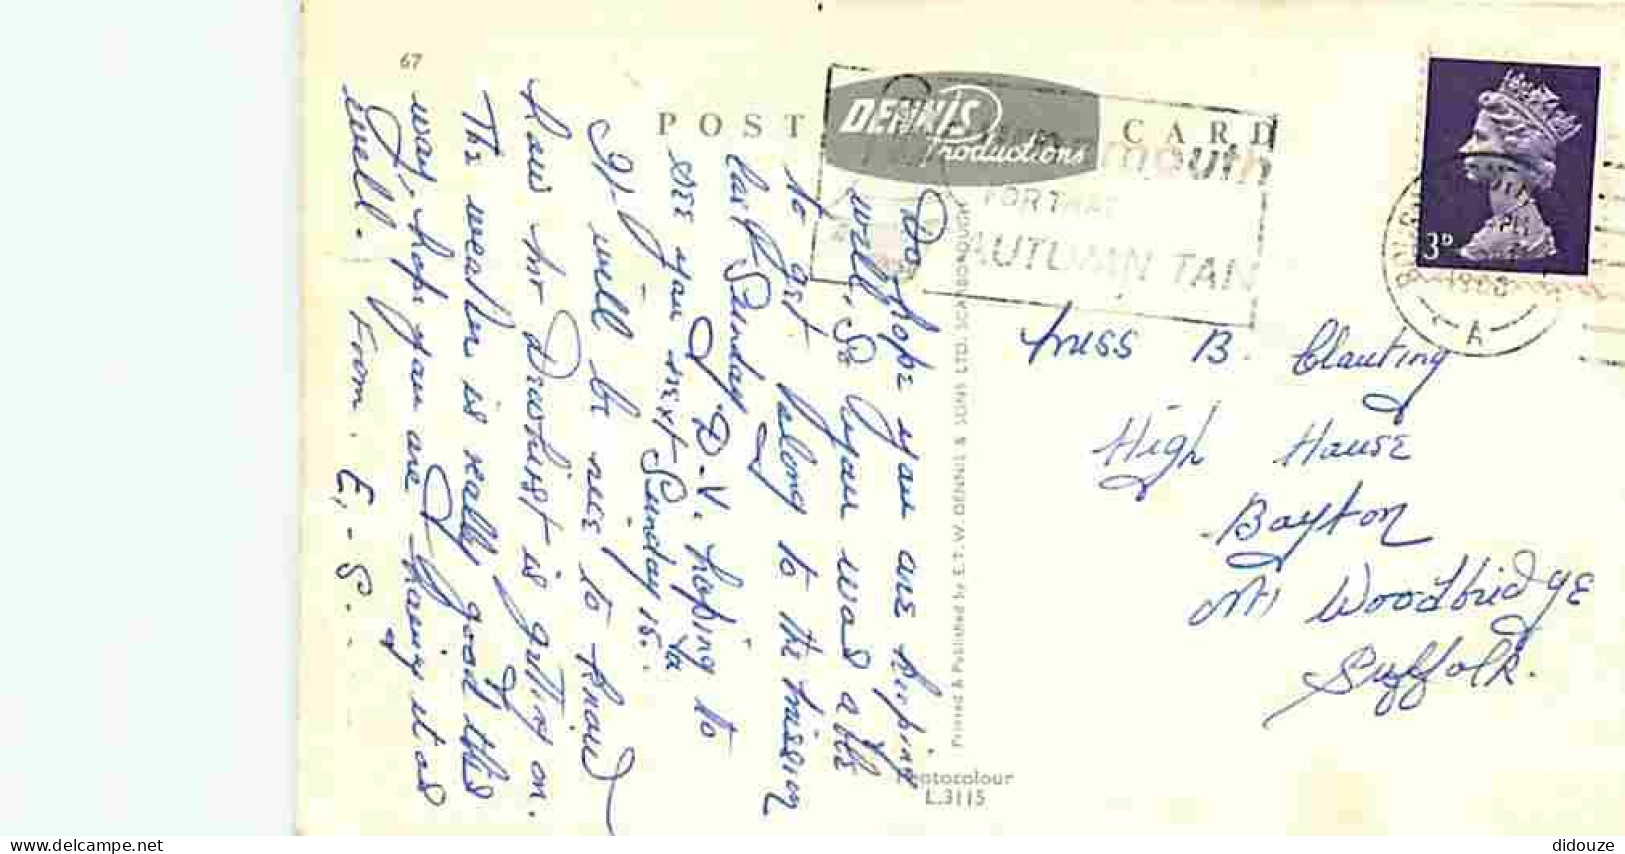 67
POST CARD
DENNIS
Productions
mouth
FOR THAT
AUTUMN TAN
3D
1968
A
Do hope you are keeping
well, So your was able
to get along to the mission
last Sunday
D.V. hoping to
see you next Sunday 15.
It will be nice to know
how Mr Dewhirst is getting on.
The weather is really good this
way, hope you are having it as
well. From. E.-S.
Miss B.
High House
Bayton
Nr Woodbridge
Suffolk.
Printed & Published by E.T.W. DENNIS & SONS LTD. SCARBOROUGH
Photocolour
L.3115
delcampe.net
didouze